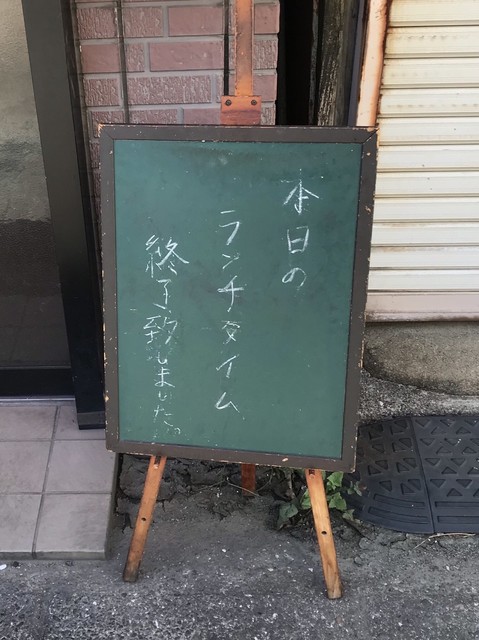 本日の
ランチタイム
終了致しました。